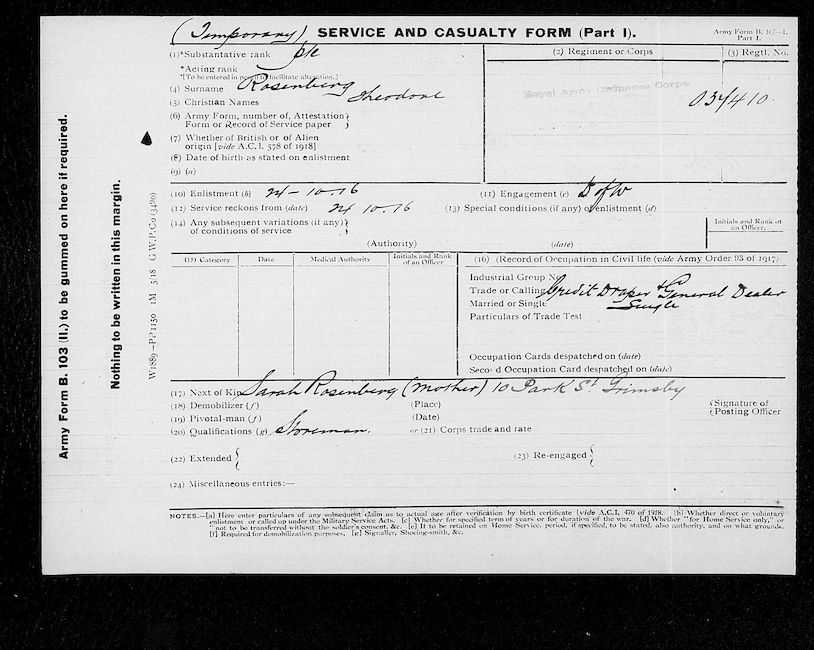 (Temporary) SERVICE AND CASUALTY FORM (Part I).
Army Form B. 103-I.
Part I.
(1)*Substantative rank pte
*Acting rank
*[To be entered in pencil to facilitate alteration.]
(2) Regiment or Corps
Royal Army Ordnance Corps
(3) Regtl. No.
037410.
(4) Surname Rosenberg
(5) Christian Names Theodore
(6) Army Form, number, of, Attestation }
Form or Record of Service paper }
(7) Whether of British or of Alien
origin [vide A.C.I. 578 of 1918]
(8) Date of birth as stated on enlistment
(9) (a)
(10) Enlistment (b) 24-10.16
(11) Engagement (c) D of W
(12) Service reckons from (date) 24 10.16
(13) Special conditions (if any) of enlistment (d)
(14) Any subsequent variations (if any) }
of conditions of service }
Initials and Rank of
an Officer.
(Authority) (date)
(15) Category
Date
Medical Authority
Initials and Rank
of an Officer
(16) (Record of Occupation in Civil life (vide Army Order 93 of 1917)
Industrial Group No
Trade or Calling Credit Draper & General Dealer
Married or Single Single
Particulars of Trade Test
Occupation Cards despatched on (date)
Second Occupation Card despatched on (date)
(17) Next of Kin Sarah Rosenberg (mother) 10 Park St Grimsby
(18) Demobilizer (f) (Place) {Signature of
(19) Pivotal-man (f) (Date) {Posting Officer
(20) Qualifications (g) Storeman. or (21) Corps trade and rate
(22) Extended { (23) Re-engaged {
(24) Miscellaneous entries:—
NOTES.—[a] Here enter particulars of any subsequent claim as to actual age after verification by birth certificate [vide A.C.I. 470 of 1918. [b] Whether direct or voluntary
enlistment or called up under the Military Service Acts. [c] Whether for specified term of years or for duration of the war. [d] Whether "for Home Service only," or
"not to be transferred without the soldier's consent, &c. [e] If to be retained on Home Service, period, if specified, to be stated, also authority, and on what grounds.
[f] Required for demobilization purposes. [g] Signaller, Shoeing-smith, &c.
Army Form B. 103 (II.) to be gummed on here if required.
Nothing to be written in this margin.
W 1889—PP 1150 1M 5/18 G.W.P.Co (3480)